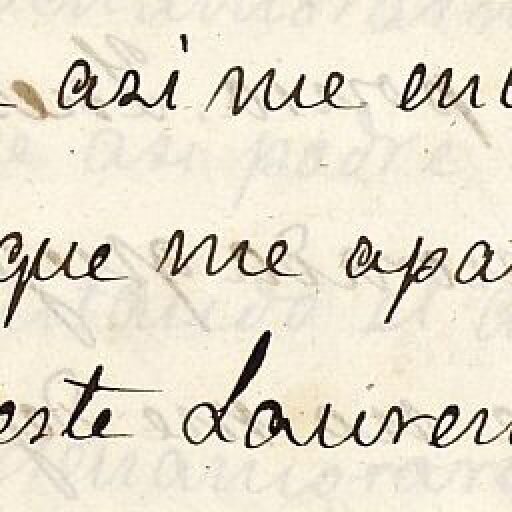 asi me en
que me apa
este Lauren